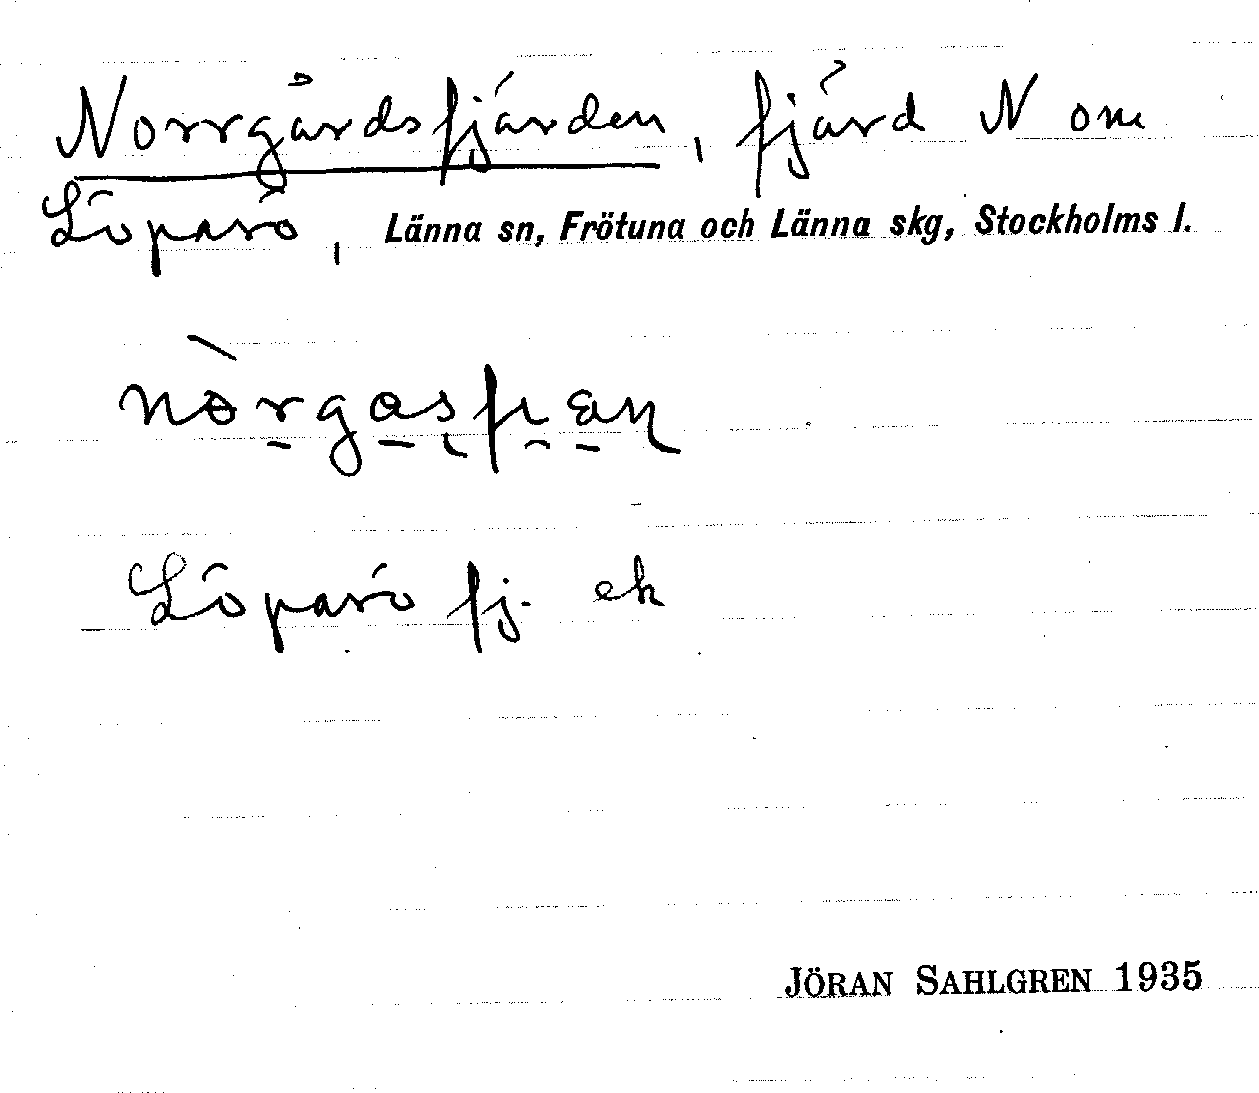 Norrgårdsfjärden, fjärd N om
Löparö, Länna sn, Frötuna och Länna skg, Stockholms l.
Löparö fj. ek
JÖRAN SAHLGREN 1935